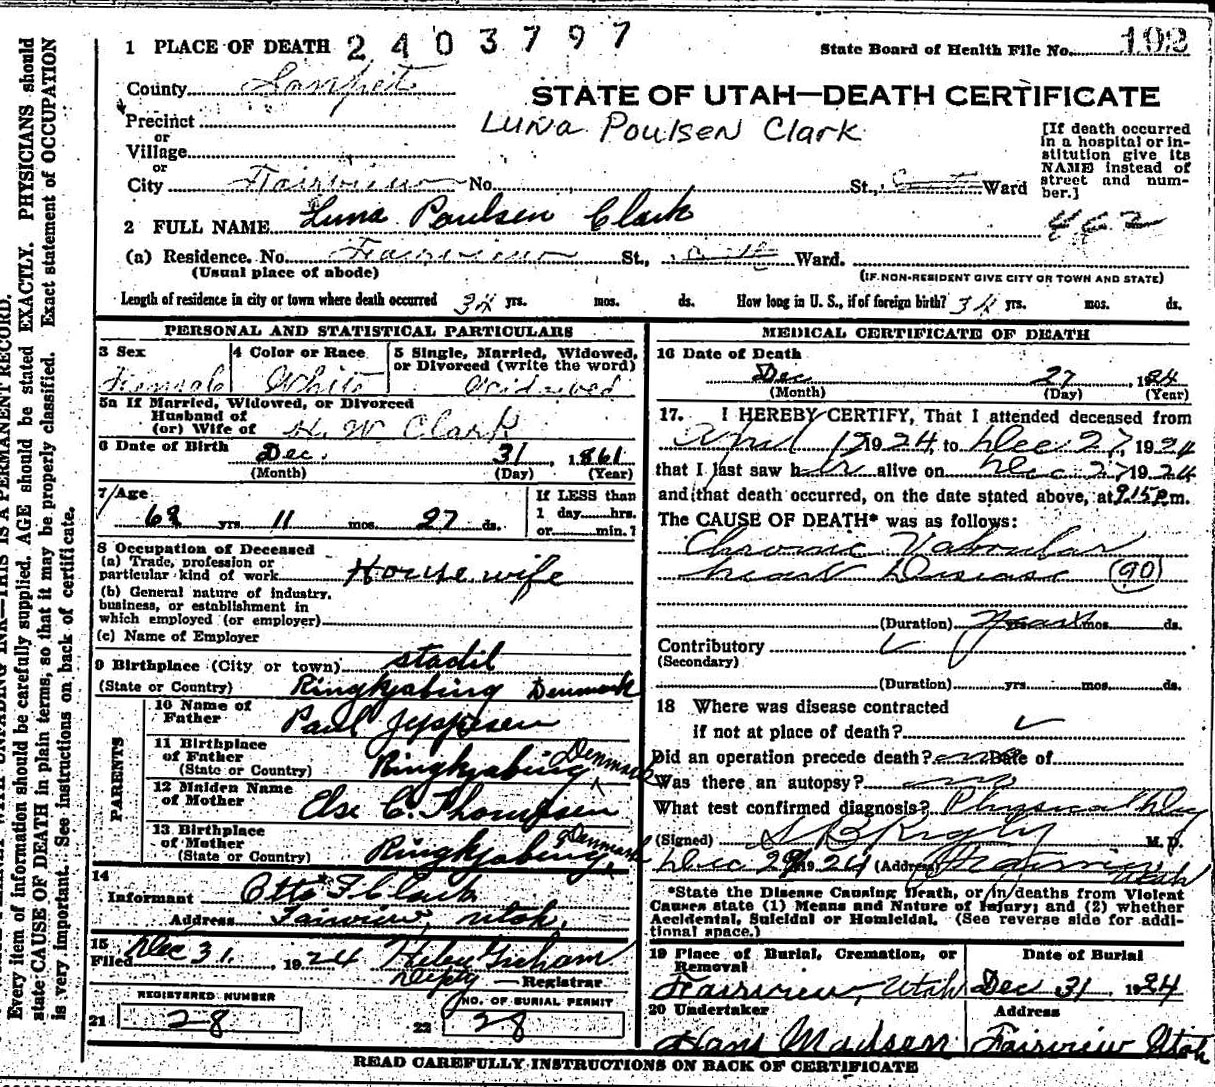 1 PLACE OF DEATH 2403797
State Board of Health File No. 192
County Sanpete
STATE OF UTAH—DEATH CERTIFICATE
Precinct
or
Village
or
City Fairview No. St., Ward
Luna Poulsen Clark
[If death occurred in a hospital or in-
stitution give its
NAME instead of
street and num-
ber.]
2 FULL NAME Luna Paulsen Clark
(a) Residence. No. Fairview St., Ward.
(Usual place of abode)
(IF NON-RESIDENT GIVE CITY OR TOWN AND STATE)
Length of residence in city or town where death occurred 34 yrs. mos. ds. How long in U. S., if of foreign birth? 34 yrs. mos. ds.
PERSONAL AND STATISTICAL PARTICULARS
3 Sex
Female
4 Color or Race
White
5 Single, Married, Widowed,
or Divorced (write the word)
Widowed
5a If Married, Widowed, or Divorced
Husband of
(or) Wife of H. W Clark
6 Date of Birth Dec. 31, 1861
(Month) (Day) (Year)
7 Age
62 yrs. 11 mos. 27 ds.
If LESS than
1 day hrs.
or min.?
8 Occupation of Deceased
(a) Trade, profession or
particular kind of work Housewife
(b) General nature of industry,
business, or establishment in
which employed (or employer)
(c) Name of Employer
9 Birthplace (City or town) Stadil
(State or Country) Ringkjabing Denmark
PARENTS
10 Name of
Father Paul Jeppesen
11 Birthplace
of Father
(State or Country) Ringkjabing Denmark
12 Maiden Name
of Mother Else C. Thomsen
13 Birthplace
of Mother
(State or Country) Ringkjabing Denmark
14
Informant Otto F. Clark
Address Fairview, Utah.
15
Filed Dec 31, 1924 Helen Graham
Depty Registrar
REGISTERED NUMBER
21 28
NO. OF BURIAL PERMIT
22 28
MEDICAL CERTIFICATE OF DEATH
16 Date of Death
Dec 27, 1924
(Month) (Day) (Year)
17. I HEREBY CERTIFY, That I attended deceased from
April 1924, to Dec 27, 1924
that I last saw her alive on Dec 27 1924
and that death occurred, on the date stated above, at 9.15 P.m.
The CAUSE OF DEATH* was as follows:
Chronic Valvular
heart Disease (90)
(Duration) years mos. ds.
Contributory
(Secondary)
(Duration) yrs. mos. ds.
18 Where was disease contracted
if not at place of death?
Did an operation precede death? no Date of
Was there an autopsy? no
What test confirmed diagnosis? Physical
(Signed) M. D.
Dec 29 1924 (Address) Fairview Utah
*State the Disease Causing Death, or in deaths from Violent
Causes state (1) Means and Nature of Injury; and (2) whether
Accidental, Suicidal or Homicidal. (See reverse side for addi-
tional space.)
19 Place of Burial, Cremation, or
Removal
Fairview, Utah
Date of Burial
Dec 31 1924
20 Undertaker
Hans Madsen
Address
Fairview Utah
READ CAREFULLY INSTRUCTIONS ON BACK OF CERTIFICATE
THIS IS A PERMANENT RECORD.
Every item of information should be carefully supplied. AGE should be stated EXACTLY. PHYSICIANS should
state CAUSE OF DEATH in plain terms, so that it may be properly classified. Exact statement of OCCUPATION
is very important. See instructions on back of certificate.